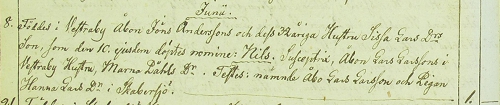 Junii.
8. Föddes i Vestraby Åbon Jöns Anderssons och dess Käriga Hustru Sissa Lars Drs
Son, som den 10. ejusdem döptes nomine: Nils. Susceptrix, Åbon Lars Larssons i
Vestraby Hustru, Marna Påhls Dr. Testes: nämnde Åbo Lars Larsson och Pigan
Hanna Lars Dr i Skabersjö.
1.